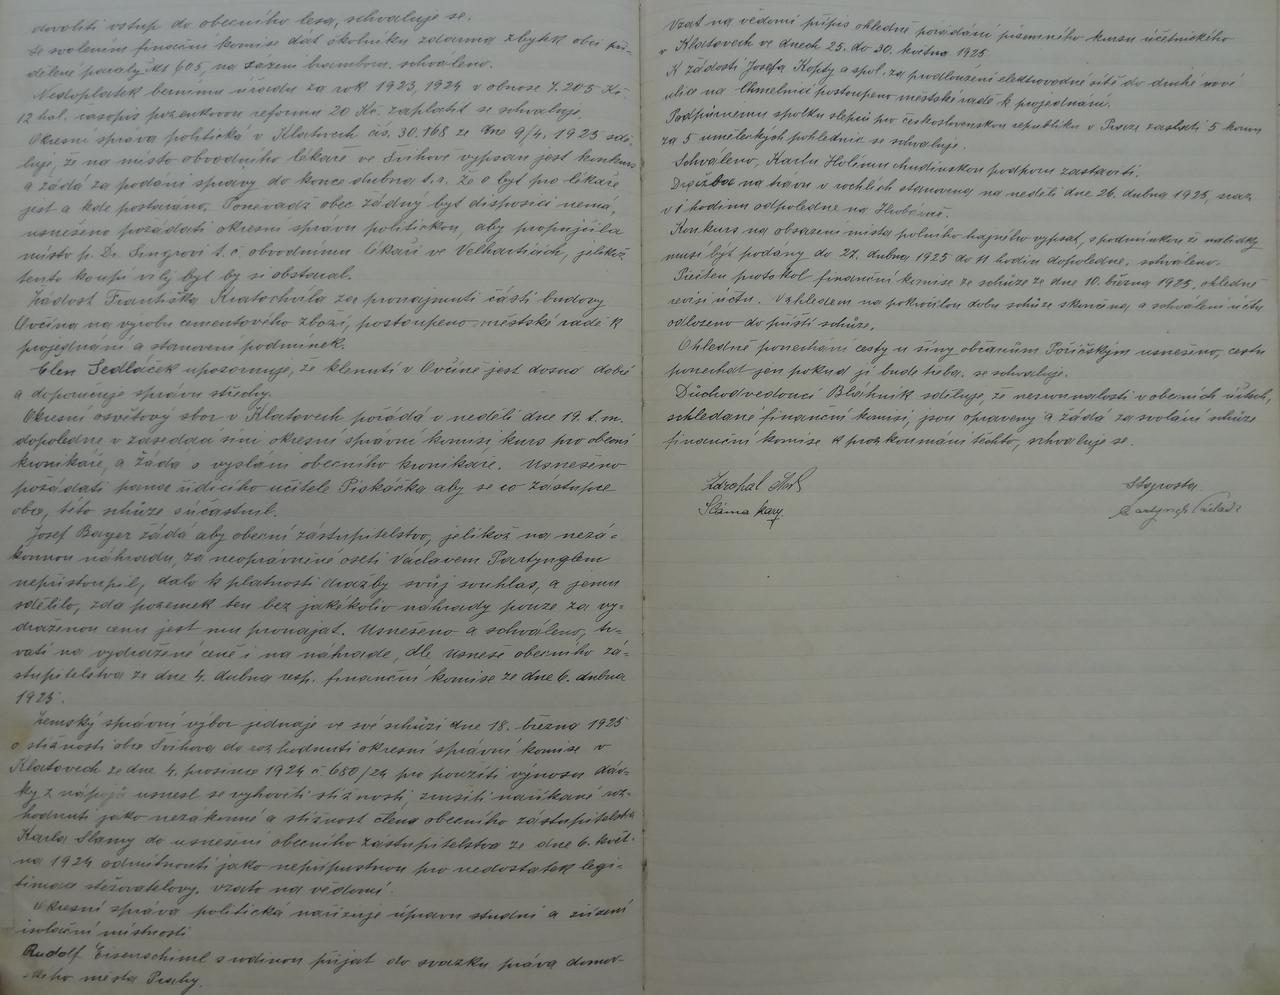 dovoliti vstup do obecního lesa, schvaluje se.
Se svolením finanční komise dát okolníku zdarma zbytek obci při-
dělené parcely 605, na sázení brambor. schváleno.
Nedoplatek berního úřadu za rok 1923, 1924 v obnose 7.205 Kč
12 hal. časopis pozemkovou reformu 20 Kč. zaplatit se schvaluje.
Okresní správa politická v Klatovech čís. 30.168 ze dne 9/4. 1925 sdě-
luje, že na místo obvodního lékaře ve Švihově vypsán jest konkurs
a žádá za podání zprávy do konce dubna t.r. že o byt pro lékaře
jest a kde postaráno. Poněvadž obec žádný byt disposici nemá,
usneseno požádati okresní správu politickou, aby propůjčila
místo p. Dr. Singrovi t.č. obvodnímu lékaři ve Velharticích, jelikož
tento koupí vily byt by si obstaral.
Žádost Františka Kratochvíla za pronajmutí části budovy
Ovčína na výrobu cementového zboží, postoupeno městské radě k
projednání a stanovení podmínek.
Člen Sedláček upozorňuje, že klenutí v Ovčíně jest dosud dobré
a doporučuje správu střechy.
Okresní osvětový sbor v Klatovech pořádá v neděli dne 19. t.m.
dopoledne v zasedací síni okresní správní komisí kurs pro obecní
kronikáře, a žádá o vyslání obecního kronikáře. Usneseno
požádati pana řídícího učitele Piskáčka aby se co zástupce
obce, této schůze súčastnil.
Josef Bayer žádá aby obecní zástupitelstvo, jelikož na nezá-
konnou náhradu, za neoprávněné osetí Václavem Partynglem
nepřistoupil, dalo k platnosti dražby svůj souhlas, a jemu
sdělilo, zda pozemek ten bez jakékoliv náhrady pouze za vy-
draženou cenu jest mu pronajat. Usneseno a schváleno, tr-
vati na vydražené ceně i na náhradě, dle usneš obecního zá-
stupitelstva ze dne 4. dubna resp. finanční komise ze dne 6. dubna
1925.
Zemský správní výbor jednaje ve své schůzi dne 18. března 1925
o stížnosti obce Švihova do rozhodnutí okresní správní komise v
Klatovech ze dne 4. prosince 1924 č. 680/24 pro použití výnosu dáv-
ky z nápojů usnesl se vyhověti stížnosti, zrušiti naříkané roz-
hodnutí jako nezákonné a stížnost člena obecního zástupitelstva
Karla Slámy do usnesení obecního zástupitelstva ze dne 6. květ-
na 1924 odmítnouti jako nepřípustnou pro nedostatek legi-
timace stěžovatelovy. vzato na vědomí.
Okresní správa politická nařizuje úpravu studní a zřízení
isolační místnosti.
Rudolf Eisenschiml s rodinou přijat do svazku práva domov-
ského města Prahy.
Vzat na vědomí přípis ohledně pořádání písemného kursu účetnického
v Klatovech ve dnech 25. do 30. května 1925.
K žádosti Josefa Kopty a spol. za prodloužení elektrovodné sítě do druhé nové
ulice na Chmelnici postoupeno městské radě k projednání.
Podpůrnému spolku slepců pro československou republiku v Praze zaslati 5 korun
za 5 uměleckých pohlednic se schvaluje.
Schváleno, Karlu Holému chudinskou podporu zastaviti.
Dražba na trávu v rochlích stanovena na neděli dne 26. dubna 1925, sraz
v 1 hodinu odpoledne na Hrobárně.
Konkurs na obsazení místa polního hajného vypsat, s podmínkou že nabídky
musí být podány do 27. dubna 1925 do 11 hodin dopoledne. schváleno.
Přečten protokol finanční komise ze schůze ze dne 10. března 1925, ohledně
revisi účtu. Vzhledem na pokročilou dobu schůze skončena a schválení účtu
odloženo do příští schůze.
Ohledně ponechání cesty u šíny občanům Poříčským usneseno, cestu
ponechat jen pokud jí bude třeba. se schvaluje.
Důchodvedoucí Bláhník sděluje, že nesrovnalosti v obecních účtech,
schledané finanční komisí, jsou opraveny a žádá za svolání schůze
finanční komise k prozkoumání těchto, schvaluje se.
Starosta
Sláma Kar.